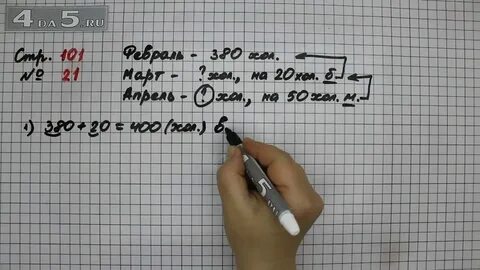 4 DA 5.RU
Стр. 101
№ 21
Февраль - 380 хол.
Март - ? хол., на 20 хол. б.
Апрель - ? хол., на 50 хол. м.
1) 380 + 20 = 400 (хол.) в
5